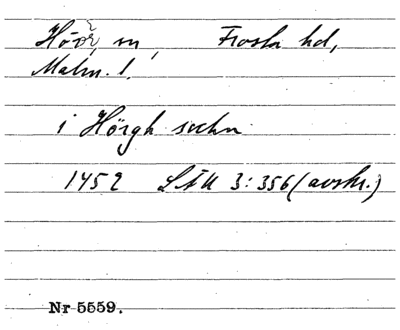 Höör, sn, Frosta hd,
Malm. l.
i Hörgh sochn
1452 LÄU 3:356 (avskr.)
Nr 5559.